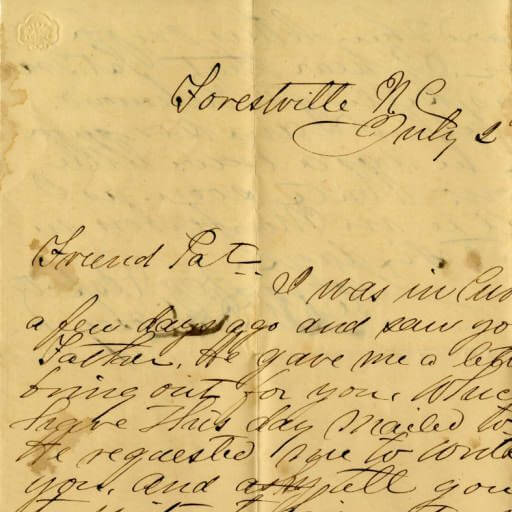 Forestville N C
July 2
Friend Pat.
I was in
a few days ago and saw yo
Father. He gave me a lett
bring out for you, Whic
have This day mailed to
He requested me to write
you, and tell you